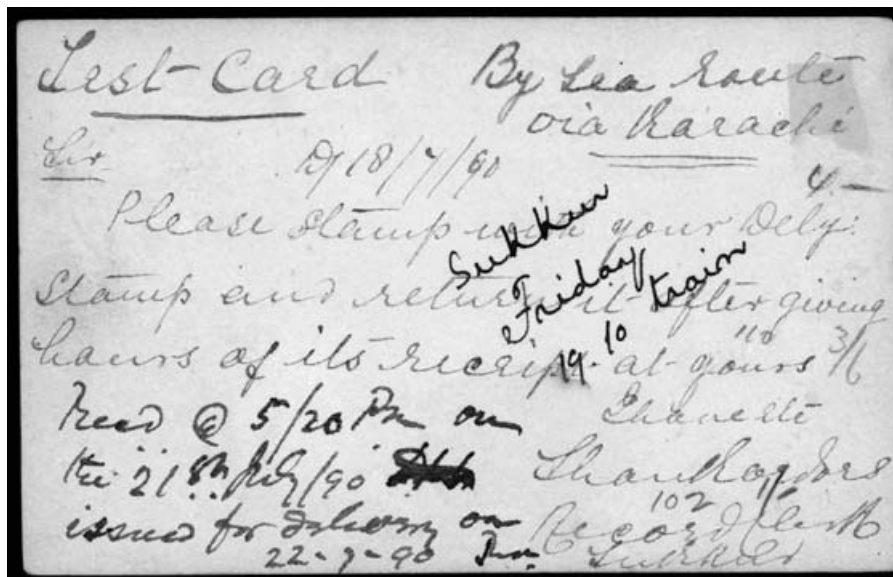 Test-Card
By Sea Route
via Karachi
Sir
D/ 18/7/90
4.—
Please stamp with your Dely:
Stamp and return it after giving
hours of its receipt at yours
Sukkur
Friday
19 10 train
Recd @ 5/20 Pm on
the 21st July/90
issued for delivery on
22-7-90
Record Clerk
Sukkur
102